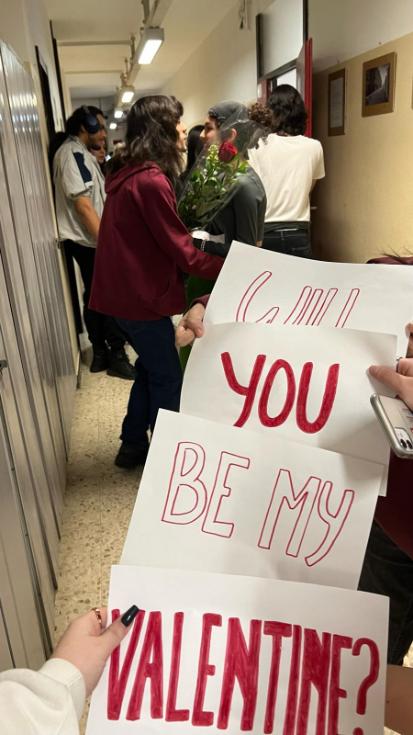 WILL
YOU
BE MY
VALENTINE?